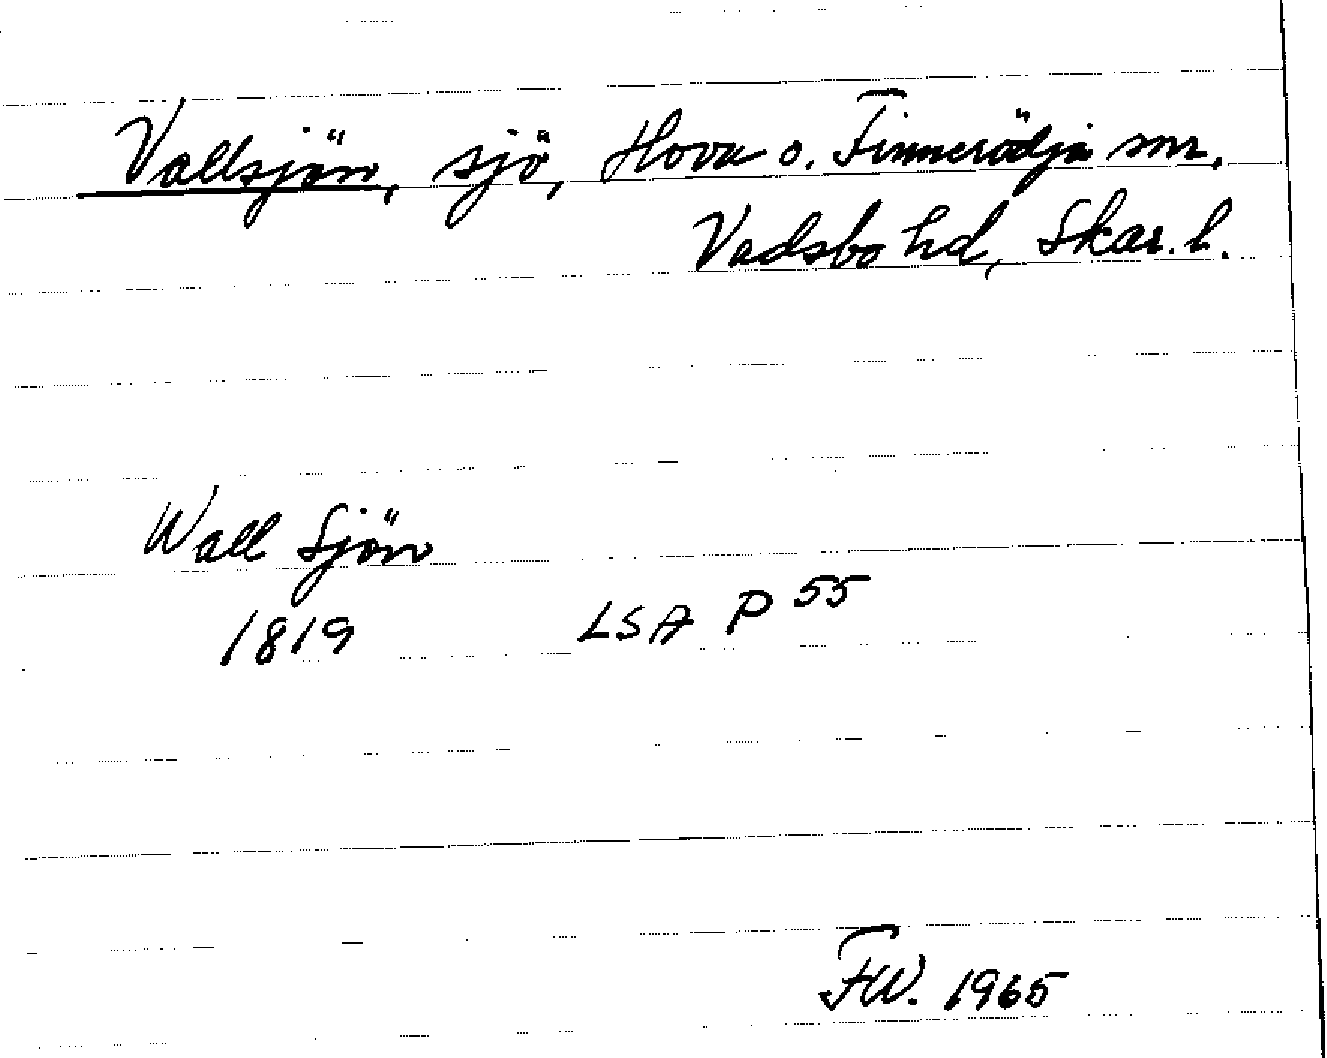 Vallsjön, sjö, Hova o. Finnerödja snr,
Vadsbo hd, Skar. l.
Wall Sjön
1819 LSA P 55
FW. 1965